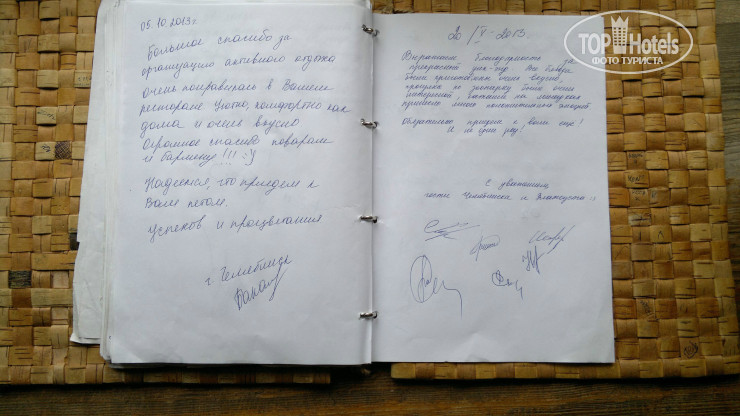 05.10.2013г
Большое спасибо за
организацию активного отдыха
очень понравилось в Вашем
ресторане Уютно, комфортно как
дома и очень вкусно
Огромное спасибо поварам
и бармену!!! :)
Надеемся, что приедем к
Вам летом.
Успехов и процветания
г. Челябинск
20/V-2013
Выражаем благодарность за
прекрасный Все блюда
были приготовлены очень вкусно,
прогулки по зоопарку были очень
катания на лошадях
привело много положительных эмоций.
Обязательно приедем к вам еще!
И не один раз!
С уважением
гости Челябинска и Златоуста :)
TOP Hotels
ФОТО ТУРИСТА